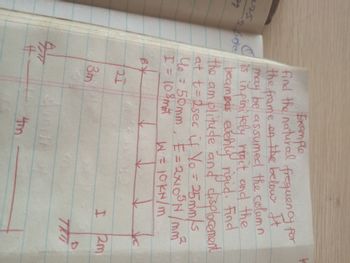 Example
find the natural frequency for
the frame on the below. It
may be assumed the column
is infinitely rigid and the
beam is evenly rigid. Find
the amplitude and displacement
at t = 2sec if V₀ = 25mm/s
U₀ = 50mm, E = 2x10⁵ N/mm²
I = 10⁸ mm⁴ W = 10 kN/m
B C
2I I
3m 2m
A D
4m